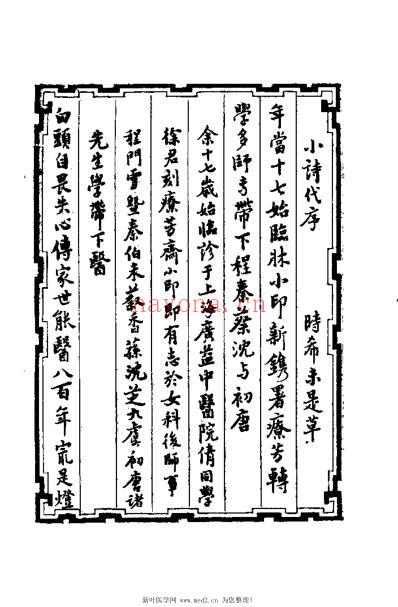 小詩代序　　時希未是草
年當十七始臨牀小印新鐫署療芳轉
學多師專帶下程秦蔡沈与初唐
余十七歲始臨診于上海廣益中醫院倩同學
徐君刻療芳齋小印即有志於女科後師事
程門雪暨秦伯未蔡香蓀沈芝九虞初唐諸
先生學帶下醫
白頭自畏失心傳家世能醫八百年寂是燈
nayona.cn
新叶医学网 www.med2.cn 为您整理!